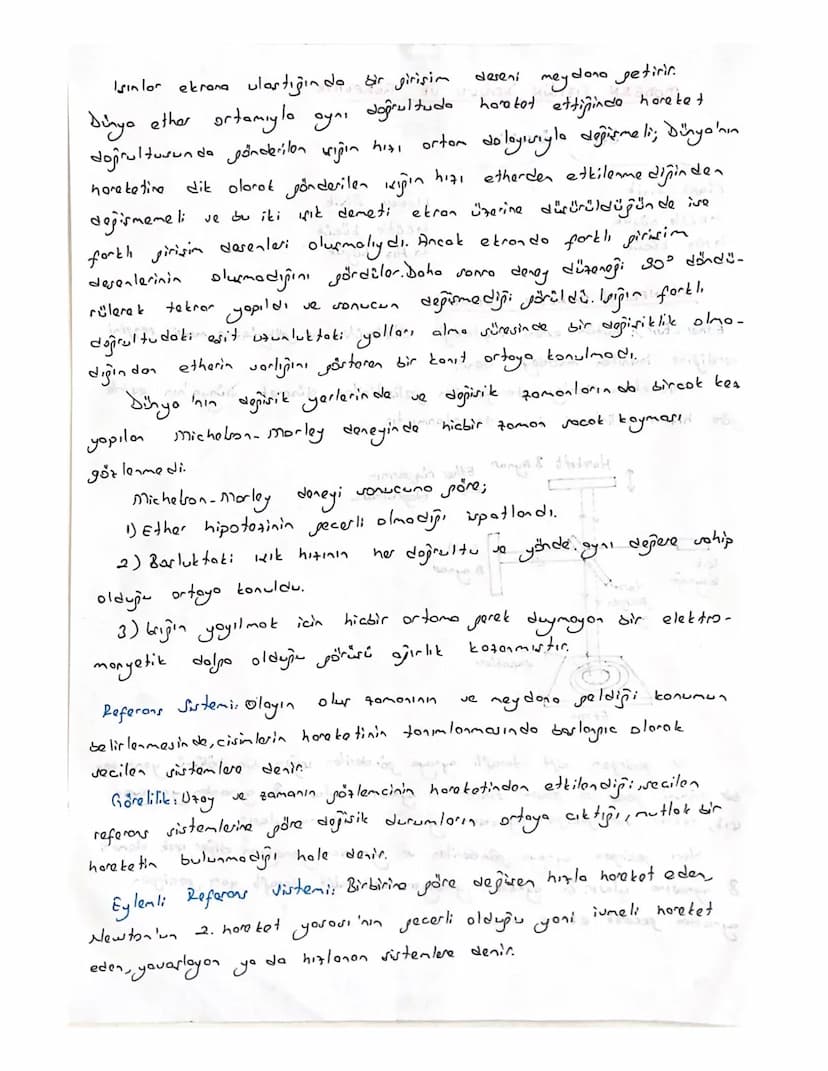 Işınlar ekrana ulaştığında bir girişim deseni meydana getirir.
Dünya ether ortamıyla aynı doğrultuda hareket ettiğinde hareket
doğrultusunda gönderilen ışığın hızı ortam dolayısıyla değişmeli; Dünya'nın
hareketine dik olarak gönderilen ışığın hızı etherden etkilenmediğinden
değişmemeli ve bu iki ışık demeti ekran üzerine düşürüldüğünde ise
farklı girişim desenleri oluşmalıydı. Ancak ekranda farklı girişim
desenlerinin oluşmadığını gördüler. Daha sonra deney düzeneği 90° döndü-
rülerek tekrar yapıldı ve sonucun değişmediği görüldü. Işığın farklı
doğrultudaki eşit uzunluktaki yolları alma süresinde bir değişiklik olma-
dığından etherin varlığını gösteren bir kanıt ortaya konulmadı.
Dünya'nın değişik yerlerinde ve değişik zamanlarında birçok kez
yapılan Michelson-Morley deneyinde hiçbir zaman saçak kayması
gözlenmedi.
Michelson-Morley deneyi sonucuna göre;
1) Ether hipotezinin geçerli olmadığı ispatlandı.
2) Boşluktaki ışık hızının her doğrultu ve yönde aynı değere sahip
olduğu ortaya konuldu.
3) Işığın yayılmak için hiçbir ortama gerek duymayan bir elektro-
manyetik dalga olduğu görüşü ağırlık kazanmıştır.
Referans Sistemi: Olayın oluş zamanının ve meydana geldiği konumun
belirlenmesinde, cisimlerin hareketinin tanımlanmasında başlangıç olarak
seçilen sistemlere denir.
Görelilik: Uzay ve zamanın gözlemcinin hareketinden etkilendiği, seçilen
referans sistemlerine göre değişik durumların ortaya çıktığı, mutlak bir
hareketin bulunmadığı hale denir.
Eylemli Referans Sistemi: Birbirine göre değişen hızla hareket eden,
Newton'un 2. hareket yasası'nın geçerli olduğu yani ivmeli hareket
eden, yavaşlayan ya da hızlanan sistemlere denir.